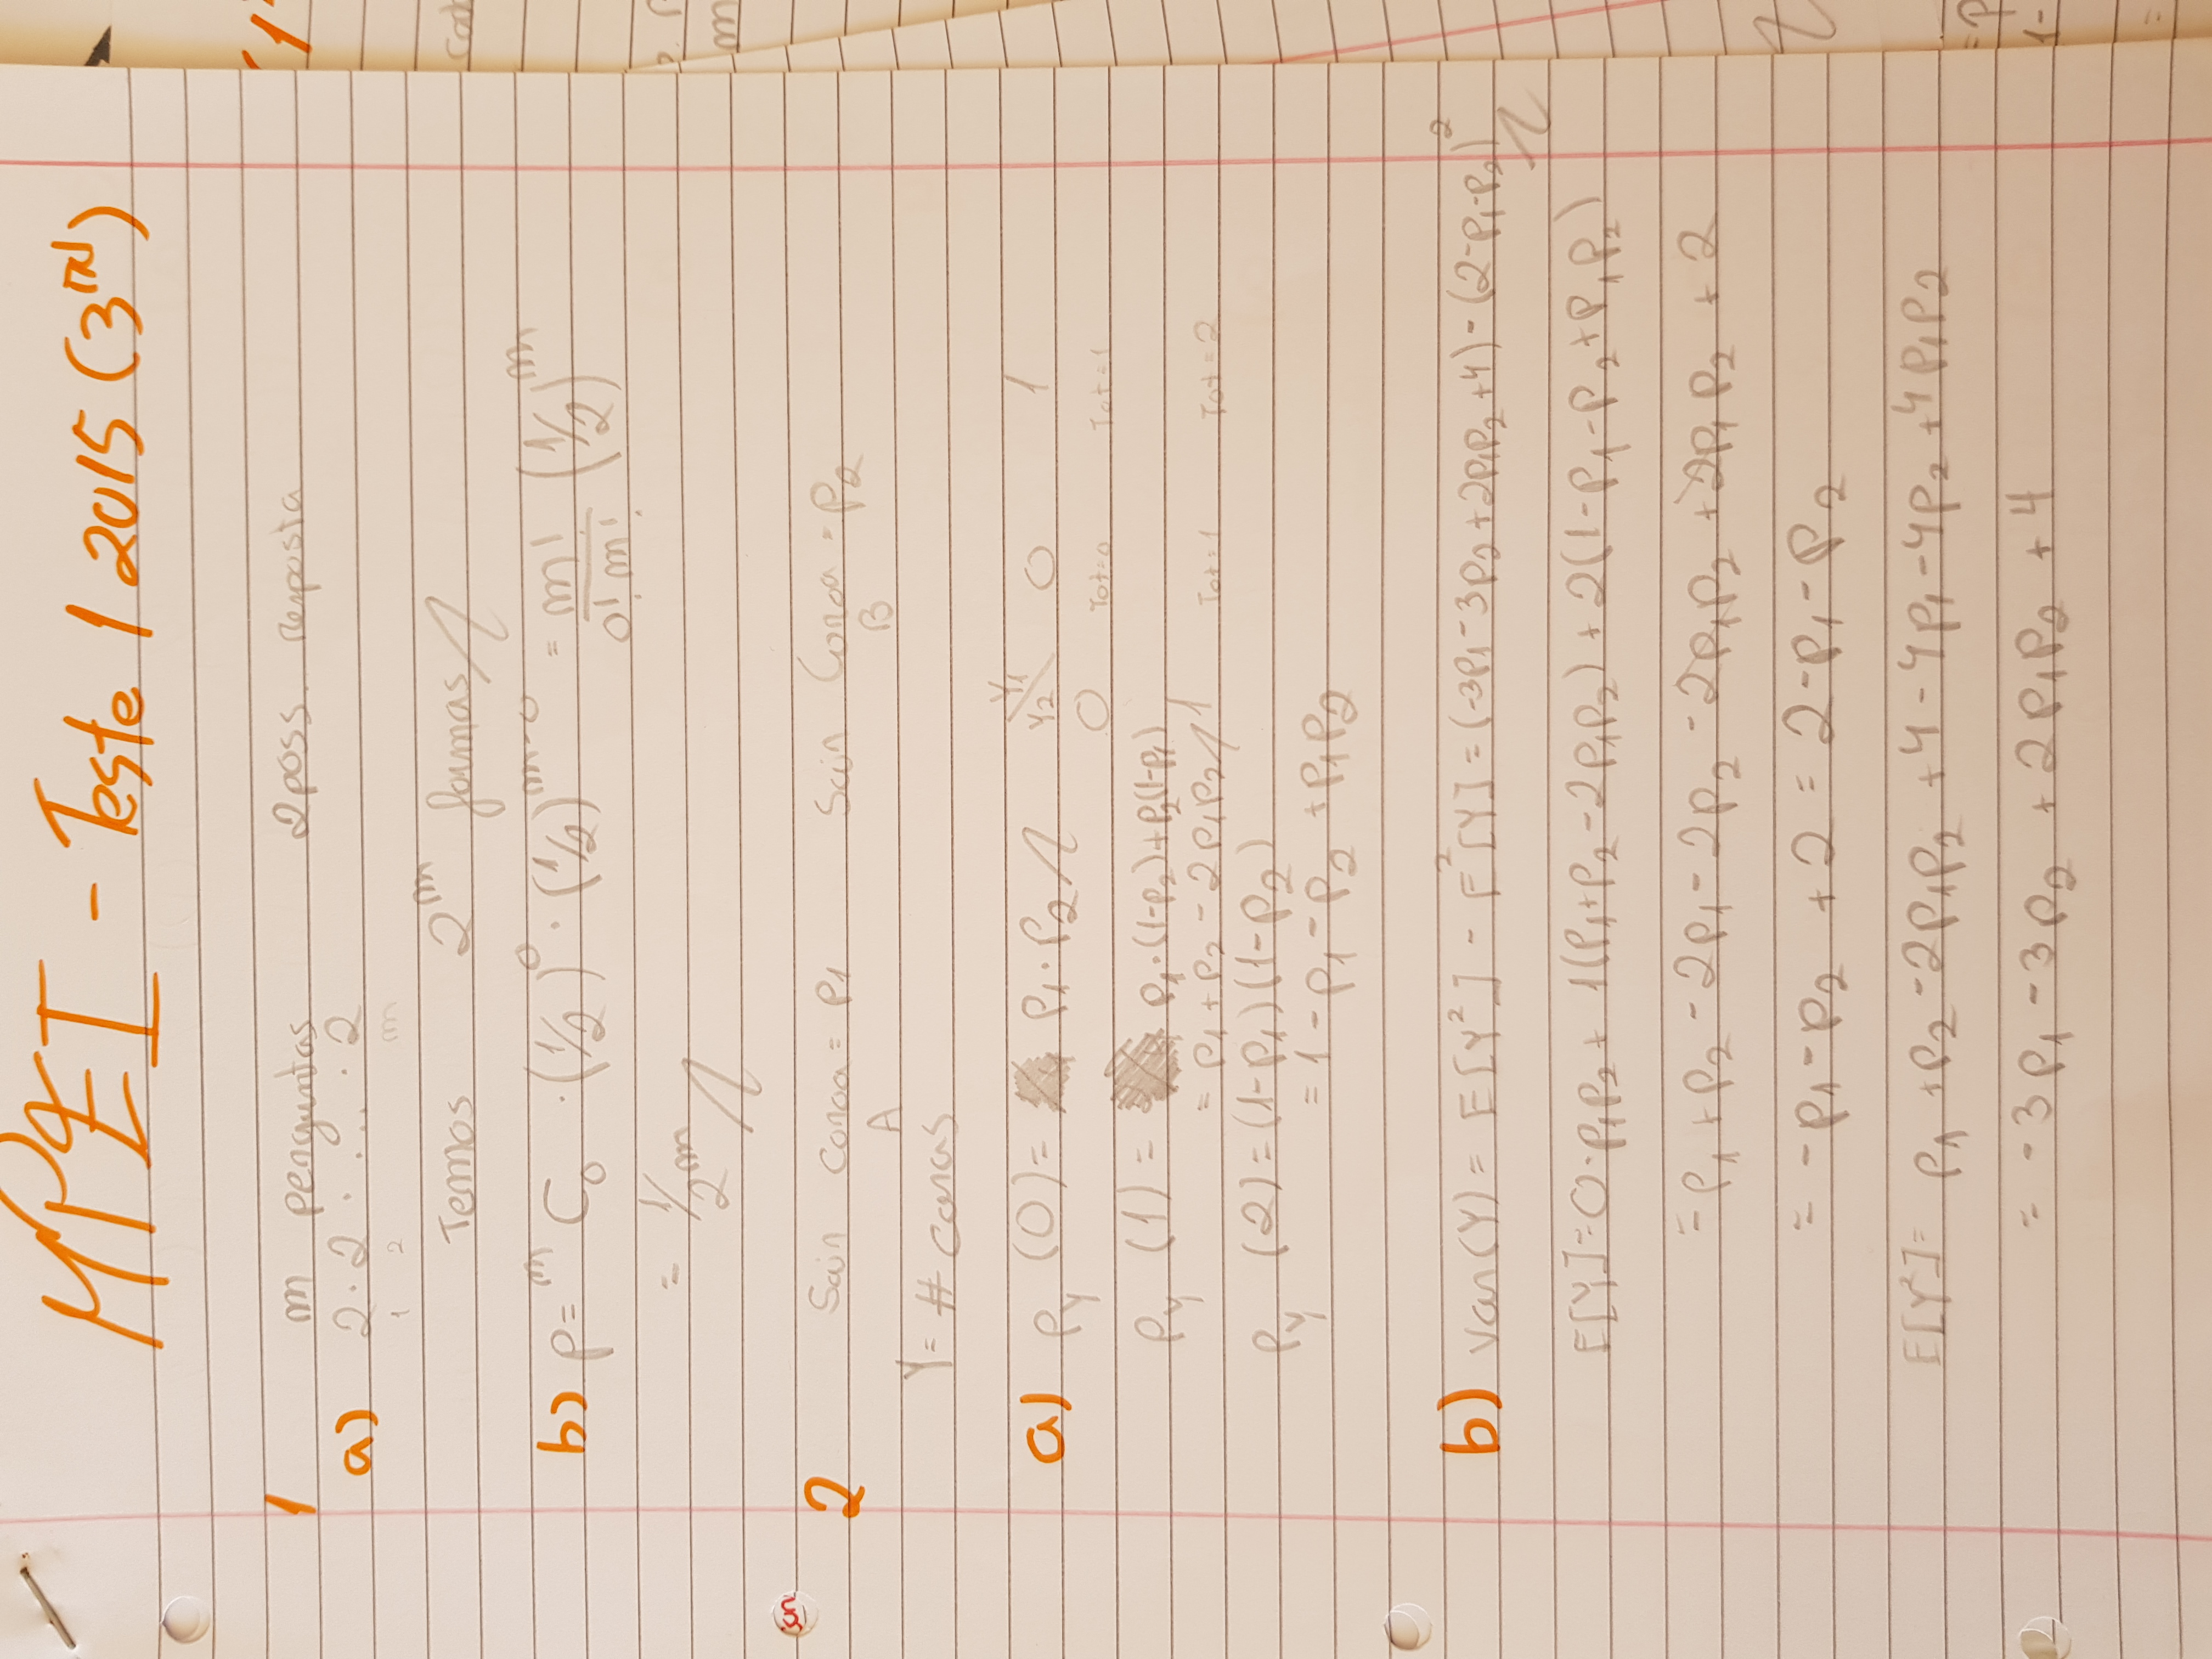 MPEI - Teste 1 2015 (3ᵐ)
1 m perguntas 2 poss. resposta
a) 2 · 2 · .... · 2
1 2 m
Temos 2^m formas //
b) p = ^m C_0 · (1/2)^0 · (1/2)^(m-0) = m!/(0! m!) (1/2)^m
= 1/2^m //
2 Sair Coroa = P1 Sair Coroa = P2
A B
Y = # caras
a) P_Y (0) = P1 · P2 // Y2\Y1 0 1
0 Tot=0 Tot=1
P_Y (1) = P1·(1-P2)+P2(1-P1)
= P1 + P2 - 2P1P2 // 1 Tot=1 Tot=2
P_Y (2) = (1-P1)(1-P2)
= 1 - P1 - P2 + P1P2
b) Var(Y) = E[Y²] - E²[Y] = (-3P1-3P2+2P1P2+4) - (2-P1-P2)² //
E[Y] = 0·P1P2 + 1(P1+P2-2P1P2) + 2(1-P1-P2+P1P2)
= P1 + P2 - 2P1 - 2P2 - 2P1P2 + 2P1P2 + 2
= -P1 - P2 + 2 = 2 - P1 - P2
E[Y²] = P1 + P2 - 2P1P2 + 4 - 4P1 - 4P2 + 4P1P2
= -3P1 - 3P2 + 2P1P2 + 4